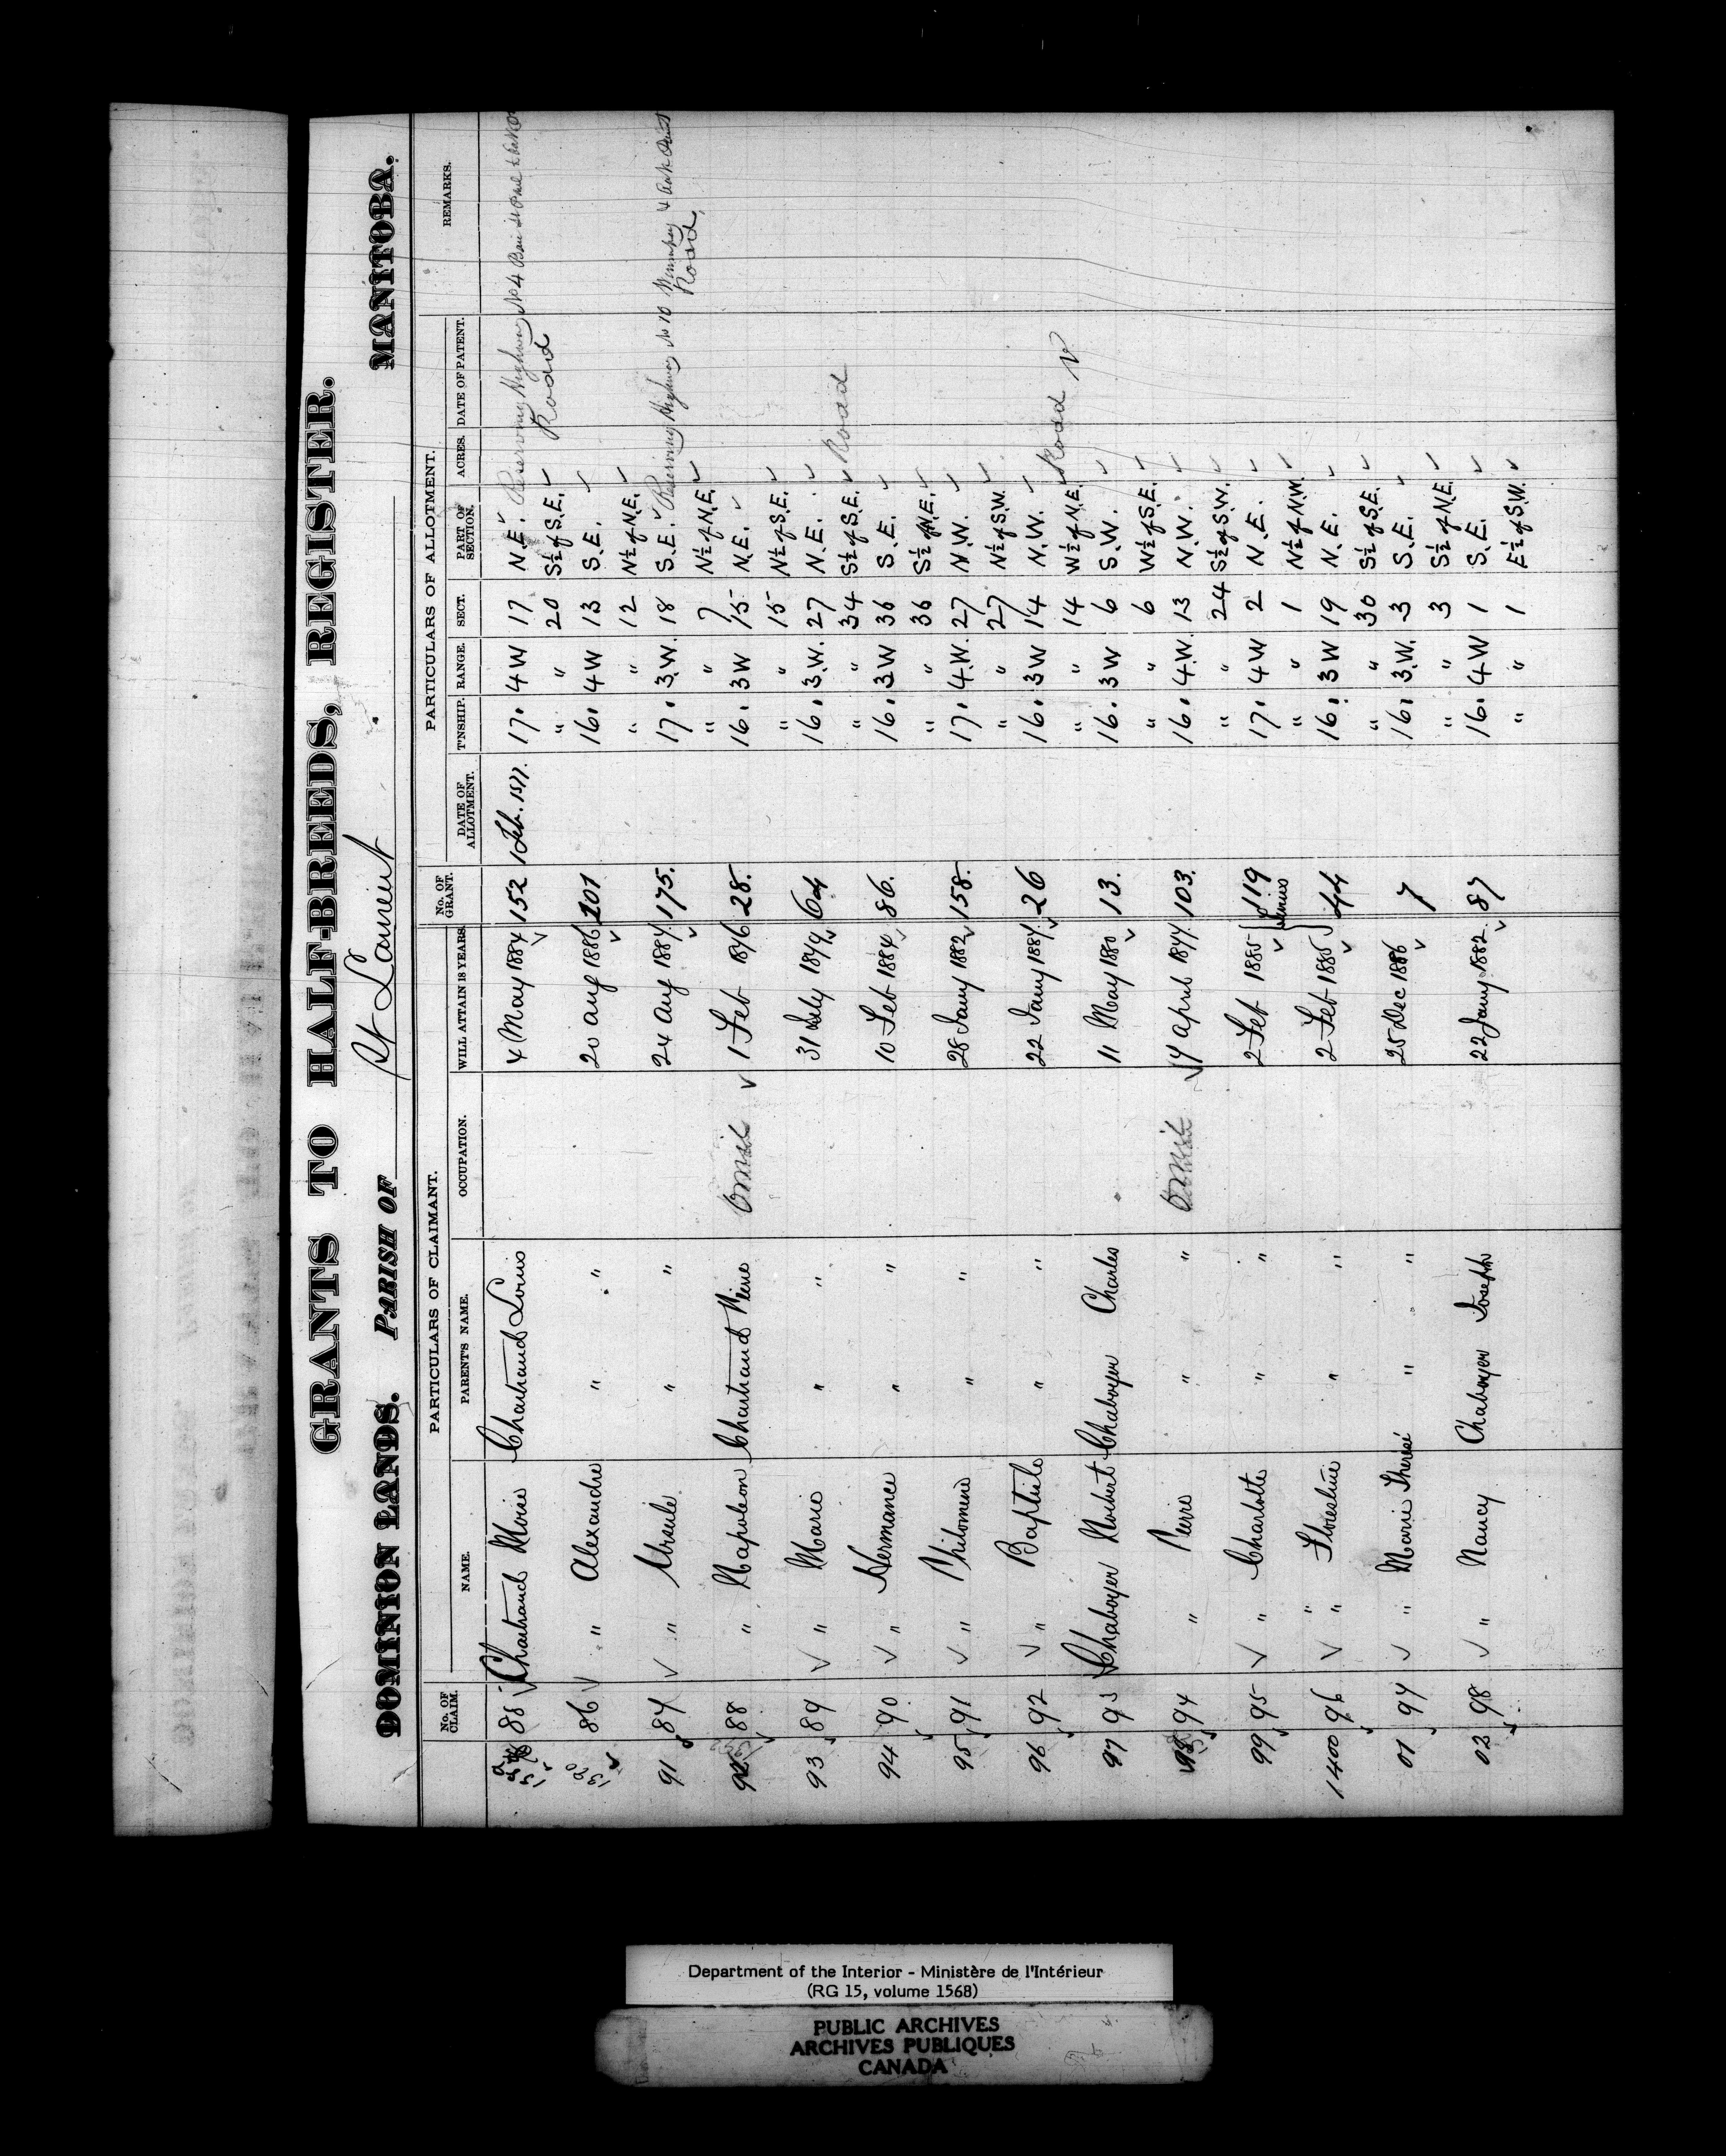 GRANTS TO HALF-BREEDS, REGISTER.
DOMINION LANDS. PARISH OF St Laurent MANITOBA.
PARTICULARS OF CLAIMANT. PARTICULARS OF ALLOTMENT.
No. OF CLAIM. NAME. PARENT'S NAME. OCCUPATION. WILL ATTAIN 18 YEARS. No. OF GRANT. DATE OF ALLOTMENT. T'NSHIP. RANGE. SECT. PART OF SECTION. ACRES. DATE OF PATENT. REMARKS.
85 Chartrand Moise Chartrand Louis 4 May 1884 152 1 Feb. 1877. 17. 4 W 17 N.E. Reserving Highway No 4
" " 20 S½ of S.E. Road
1390 86 " Alexandre " " 20 Aug 1886 201 16. 4 W 13 S.E.
" " 12 N½ of N.E.
91 87 " Ursule " " 24 Aug 1887 175. 17. 3.W. 18 S.E. Reserving Highway No 10 Winnipeg & Oak Point
" " 7 N½ of N.E. Road
92 88 " Napoleon Chartrand Pierre Omit 1 Feb 1876 28. 16. 3 W 15 N.E.
" " 15 N½ of S.E.
93 89 " Marie " " 31 July 1879 64 16. 3.W. 27 N.E.
" " 34 S½ of S.E. Road
94 90 " Hermance " " 10 Feb 1884 86. 16. 3 W 36 S.E.
" " 36 S½ of N.E.
95 91 " Philomene " " 28 Jany 1882 158. 17. 4.W. 27 N.W.
" " 27 N½ of S.W.
96 92 " Baptiste " " 22 Jany 1887 26 16. 3 W 14 N.W.
" " 14 W½ of N.E. Road
97 93 Chaboyer Norbert Chaboyer Charles 11 May 1880 13. 16. 3 W 6 S.W.
" " 6 W½ of S.E.
98 94 " Pierre " " Omit 17 April 1877 103. 16. 4.W. 13 N.W.
" " 24 S½ of S.W.
99 95 " Charlotte " " 2 Feb 1885 119 17. 4 W 2 N.E.
" " 1 N½ of N.W.
1400 96 " " " " 2 Feb 1885 44 16. 3 W 19 N.E.
" " 30 S½ of S.E.
01 97 " Marie Therese " " 25 Dec 1886 7 16. 3.W. 3 S.E.
" " 3 S½ of N.E.
02 98 " Nancy Chaboyer Joseph 22 Jany 1882 87 16. 4 W 1 S.E.
" " 1 E½ of S.W.
Department of the Interior - Ministère de l'Intérieur
(RG 15, volume 1568)
PUBLIC ARCHIVES
ARCHIVES PUBLIQUES
CANADA